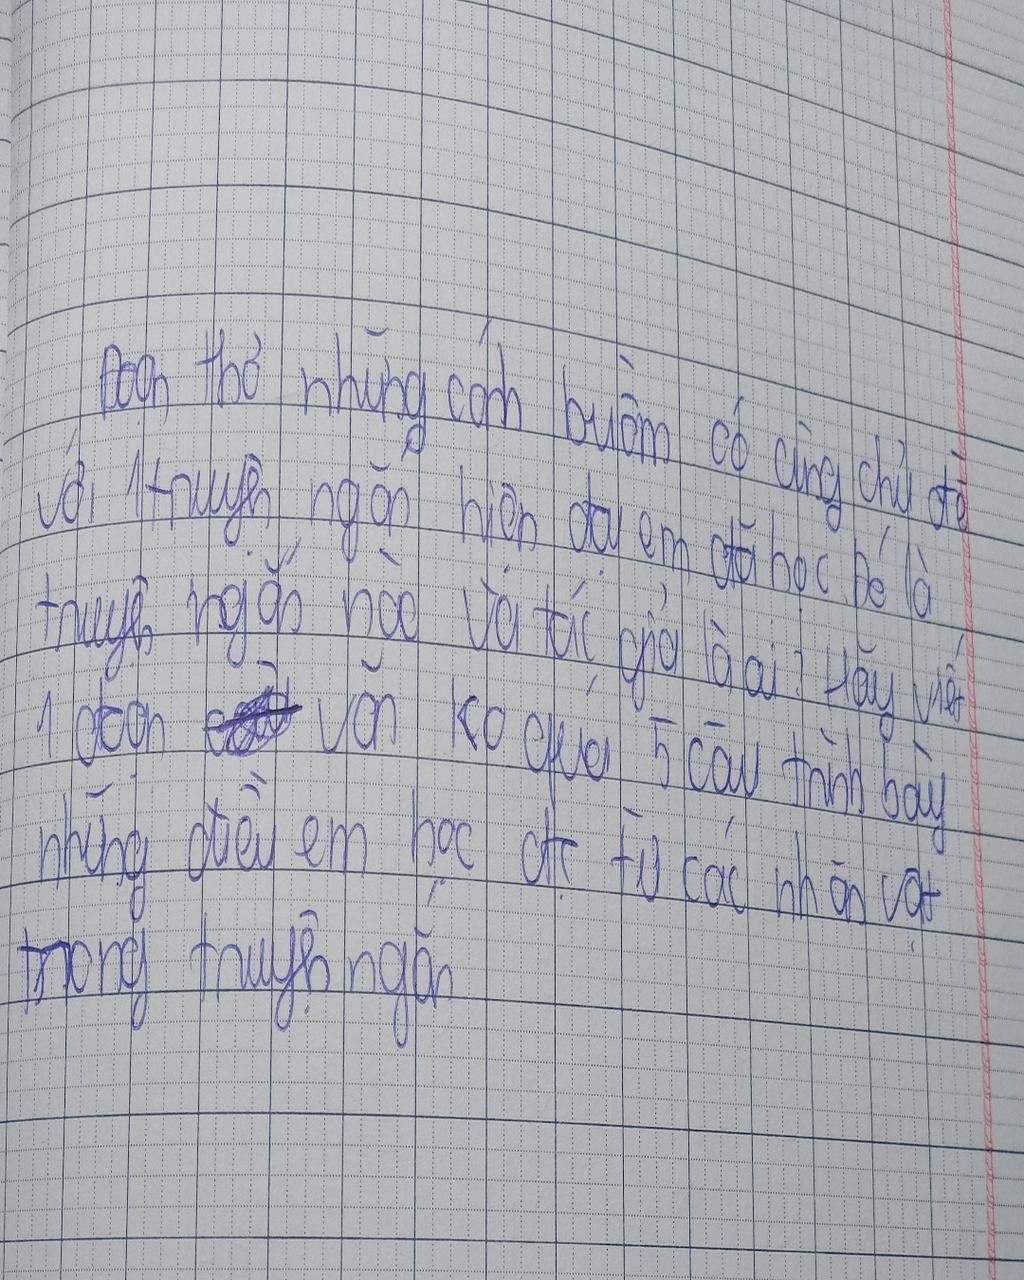 Đoạn thơ những cánh buồm có cùng chủ đề
với 1 truyện ngắn hiện đại em đã học Đó là
truyện ngắn nào và tác giả là ai? Hãy viết
1 đoạn văn ko quá 5 câu trình bày
những điều em học đc từ các nhân vật
trong truyện ngắn